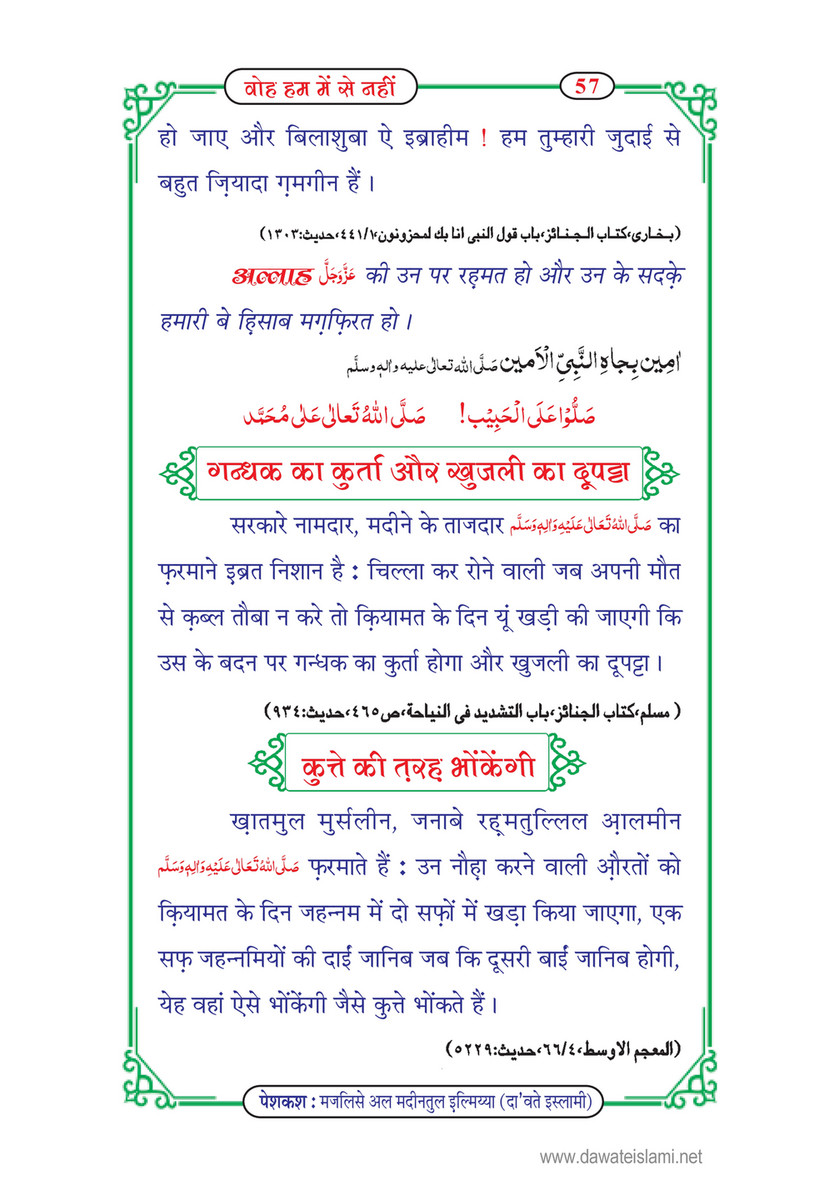 वोह हम में से नहीं
57
हो जाए और बिलाशुबा ऐ इब्राहीम ! हम तुम्हारी जुदाई से
बहुत ज़ियादा ग़मगीन हैं ।
(بخاری،کتاب الجنائز،باب قول النبی انا بك لمحزونون،۴۴۱/۱،حدیث:۱۳۰۳)
अल्लाह عَزَّوَجَلَّ की उन पर रह़मत हो और उन के सदक़े
हमारी बे ह़िसाब मग़फ़िरत हो ।
اٰمِین بِجَاہِ النَّبِیِّ الْاَمین صَلَّی اللہ تعالٰی علیہ واٰلہٖ وسلَّم
صَلُّوْا عَلَی الْحَبِیْب ! صَلَّی اللہُ تَعالٰی عَلٰی مُحَمَّد
गन्धक का कुर्ता और खुजली का दूपट्टा
सरकारे नामदार, मदीने के ताजदार صَلَّی اللہُ تَعَالٰی عَلَیْہِ وَاٰلِہٖ وَسَلَّم का
फ़रमाने इ़ब्रत निशान है : चिल्ला कर रोने वाली जब अपनी मौत
से क़ब्ल तौबा न करे तो क़ियामत के दिन यूं खड़ी की जाएगी कि
उस के बदन पर गन्धक का कुर्ता होगा और खुजली का दूपट्टा ।
(مسلم،کتاب الجنائز،باب التشدید فی النیاحة،ص۴۶۵،حدیث:۹۳۴)
कुत्ते की त़रह़ भोंकेंगी
ख़ातमुल मुर्सलीन, जनाबे रह़मतुल्लिल आ़लमीन
صَلَّی اللہُ تَعَالٰی عَلَیْہِ وَاٰلِہٖ وَسَلَّم फ़रमाते हैं : उन नौह़ा करने वाली औ़रतों को
क़ियामत के दिन जहन्नम में दो सफ़ों में खड़ा किया जाएगा, एक
सफ़ जहन्नमियों की दाईं जानिब जब कि दूसरी बाईं जानिब होगी,
येह वहां ऐसे भोंकेंगी जैसे कुत्ते भोंकते हैं ।
(المعجم الاوسط،۶۶/۴،حدیث:۵۲۲۹)
पेशकश : मजलिसे अल मदीनतुल इ़ल्मिय्या (दा'वते इस्लामी)
www.dawateislami.net